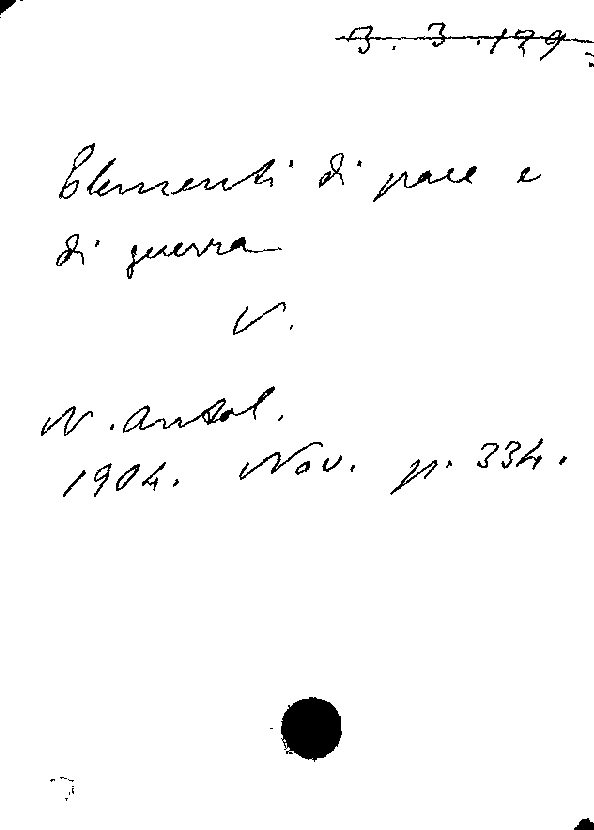 3. 3. 129
Elementi di pace e
di guerra
V.
N. Antol.
1904. Nov. p. 334.